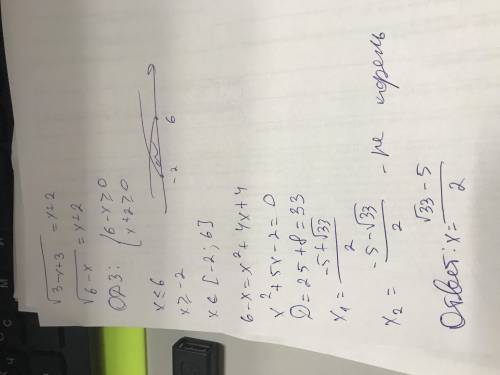 √3-x+3 = x+2
√6-x = x+2
ОДЗ: { 6-x ≥ 0
x+2 ≥ 0
-2 6
x ≤ 6
x ≥ -2
x ∈ [-2; 6]
6-x = x²+4x+4
x²+5x-2=0
D = 25+8 = 33
x₁ = (-5+√33)/2
x₂ = (-5-√33)/2 - не корень
Ответ: x = (√33-5)/2